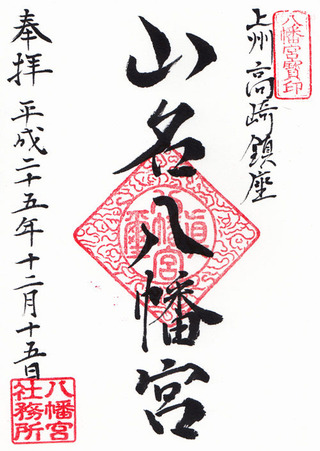 八幡宮寶印
上州高崎鎮座
山名八幡宮
奉拝 平成二十五年十二月十五日
八幡宮
社務所